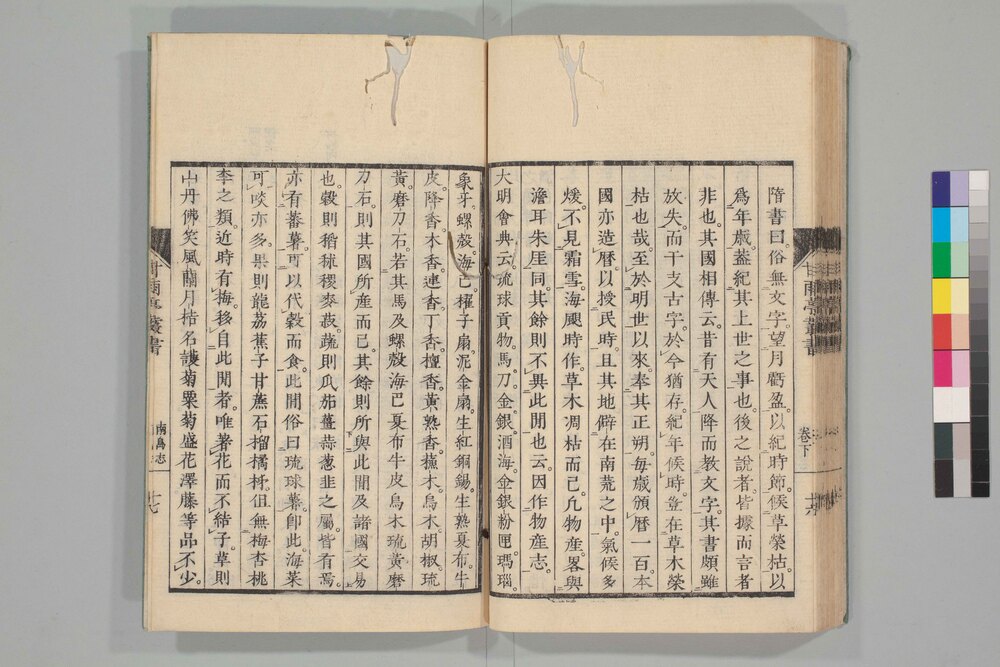 隋書曰。俗無文字。望月虧盈。以紀時節。候草榮枯。以
爲年歲。蓋紀其上世之事也。後之說者。皆據而言者
非也。其國相傳云。昔有天人降而教文字。其書頗雖
放失。而干支古字。於今猶存。紀年候時。豈在草木榮
枯也哉。至於明世以來。奉其正朔。每歲頒曆一百本
國亦造曆。以授民時。且其地僻在南荒之中。氣候多
煖。不見霜雪。海颶時作。草木凋枯而已。凡物產。畧與
瓊耳朱厓同。其餘則不異此間也云。因作物產志。
大明會典云。琉球貢物。馬。刀。金銀酒海。金銀粉匣。瑪瑙。
象牙。螺殼。海巴。櫂子扇。泥金扇。生紅銅。錫。生熟夏布。牛
皮。降香。木香。速香。丁香。檀香。黃熟香。蘇木。烏木。胡椒。琉
黃。磨刀石。若其馬及螺殼海巴夏布牛皮烏木琉黃磨
刀石。則其國所產而已。其餘則所與此間及諸國交易
也。穀則稻秫稷麥菽。蔬則瓜茄薑蒜葱韭之屬皆有焉。
亦有蕃薯。可以代穀而食。此間俗曰琉球薯。卽此。海菜
可啖亦多。果則龍荔蕉子甘蔗石榴橘柹。但無梅杏桃
李之類。近時有梅。移自此間者。唯著花而不結子。草則
山丹佛笑風蘭月桔名護菊粟菊盛花澤藤等品不少。
甘雨亭叢書
卷下
甘雨亭叢書
南島志
十七